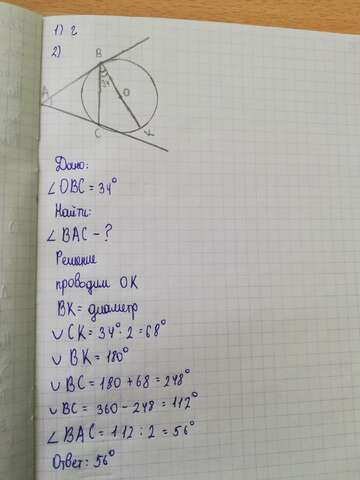 1) г
2)
B
34°
A
O
C
K
Дано:
∠OBC = 34°
Найти:
∠BAC - ?
Решение
проводим OK
BK = диаметр
∪ CK = 34° · 2 = 68°
∪ BK = 180°
∪ BC = 180 + 68 = 248°
∪ BC = 360 - 248 = 112°
∠BAC = 112 : 2 = 56°
Ответ: 56°